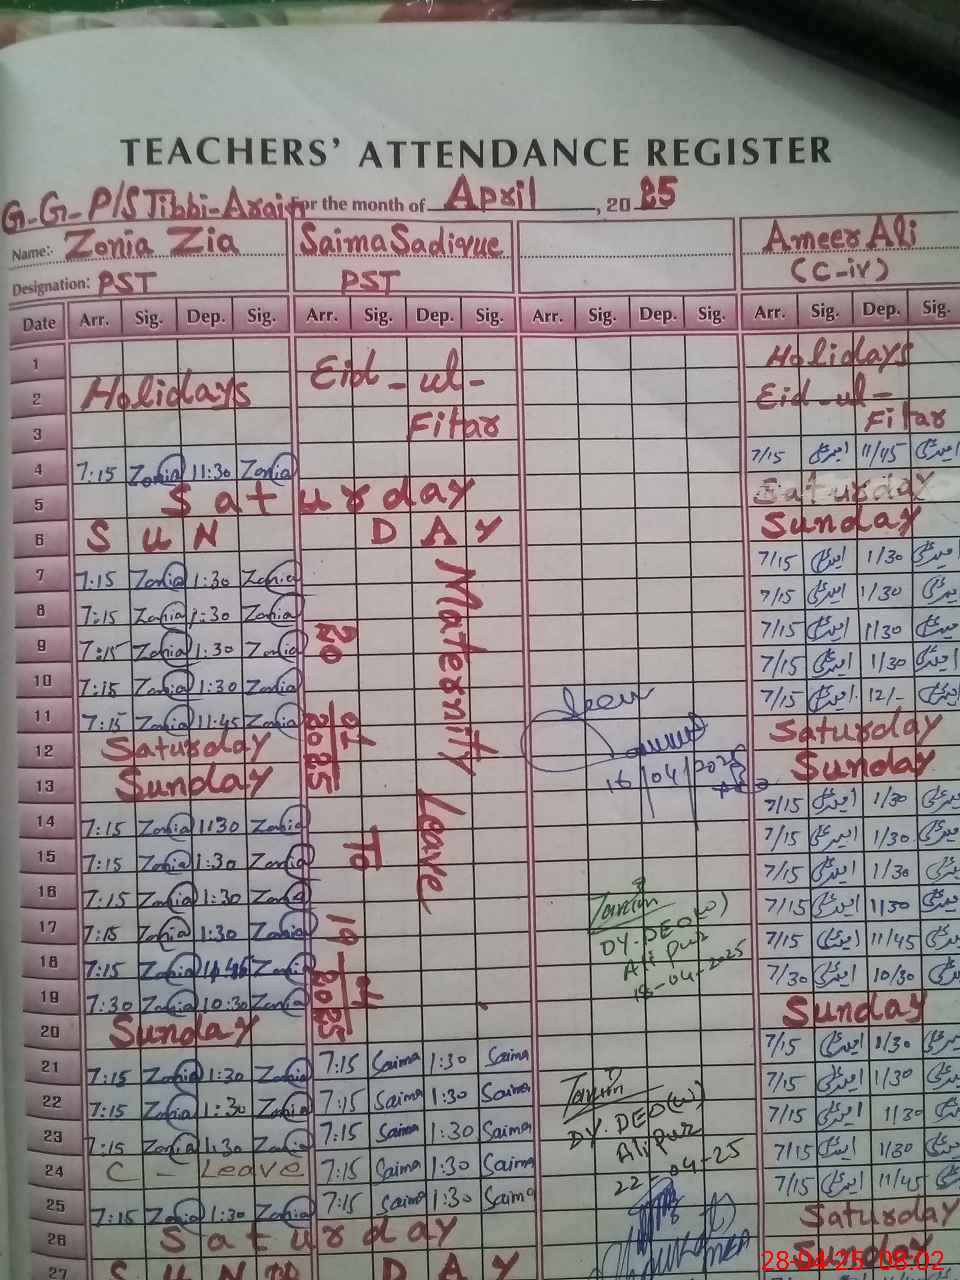 TEACHERS' ATTENDANCE REGISTER
G-G-P/S Tibbi-Arain For the month of April, 2025
Name:- Zonia Zia Saima Sadique Ameer Ali
Designation: PST PST (C-iv)
Date Arr. Sig. Dep. Sig. Arr. Sig. Dep. Sig. Arr. Sig. Dep. Sig. Arr. Sig. Dep. Sig.
1 Holidays
2 Holidays Eid-ul- Eid-ul-
3 Fitar Fitar
4 7:15 Zonia 11:30 Zonia 7/15 11/45
5 Saturday Saturday
6 SUN DAY Sunday
7 7:15 Zonia 1:30 Zonia 7/15 1/30
8 7:15 Zonia 1:30 Zonia 7/15 1/30
9 7:15 Zonia 1:30 Zonia 7/15 1/30
10 7:15 Zonia 1:30 Zonia 7/15 1/30
11 7:15 Zonia 11:45 Zonia 7/15 12/-
12 Saturday Saturday
13 Sunday Sunday
14 7:15 Zonia 1:30 Zonia 7/15 1/30
15 7:15 Zonia 1:30 Zonia 7/15 1/30
16 7:15 Zonia 1:30 Zonia 7/15 1/30
17 7:15 Zonia 1:30 Zonia 7/15 1/30
18 7:15 Zonia Zonia 7/15 11/45
19 7:30 Zonia 10:30 Zonia 7/30 10/30
20 Sunday Sunday
21 7:15 Zonia 1:30 Zonia 7:15 Saima 1:30 Saima 7/15 1/30
22 7:15 Zonia 1:30 Zonia 7:15 Saima 1:30 Saima 7/15 1/30
23 7:15 Zonia 1:30 Zonia 7:15 Saima 1:30 Saima 7/15 1/30
24 C - Leave 7:15 Saima 1:30 Saima 7/15 1/30
25 7:15 Zonia 1:30 Zonia 7:15 Saima 1:30 Saima 7/15 11/45
26 Saturday Saturday
27 SUN DAY Sunday
Maternity Leave
01
2025
To
19-4
2025
16/04/2025
DY.DEO(W)
Alipur
18-04-2025
DY.DEO(W)
Alipur
22-04-25
28-04-25 08:02